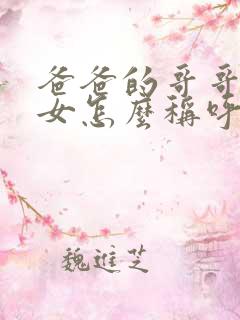 爸爸的哥哥
女怎麼稱呼
魏進芝